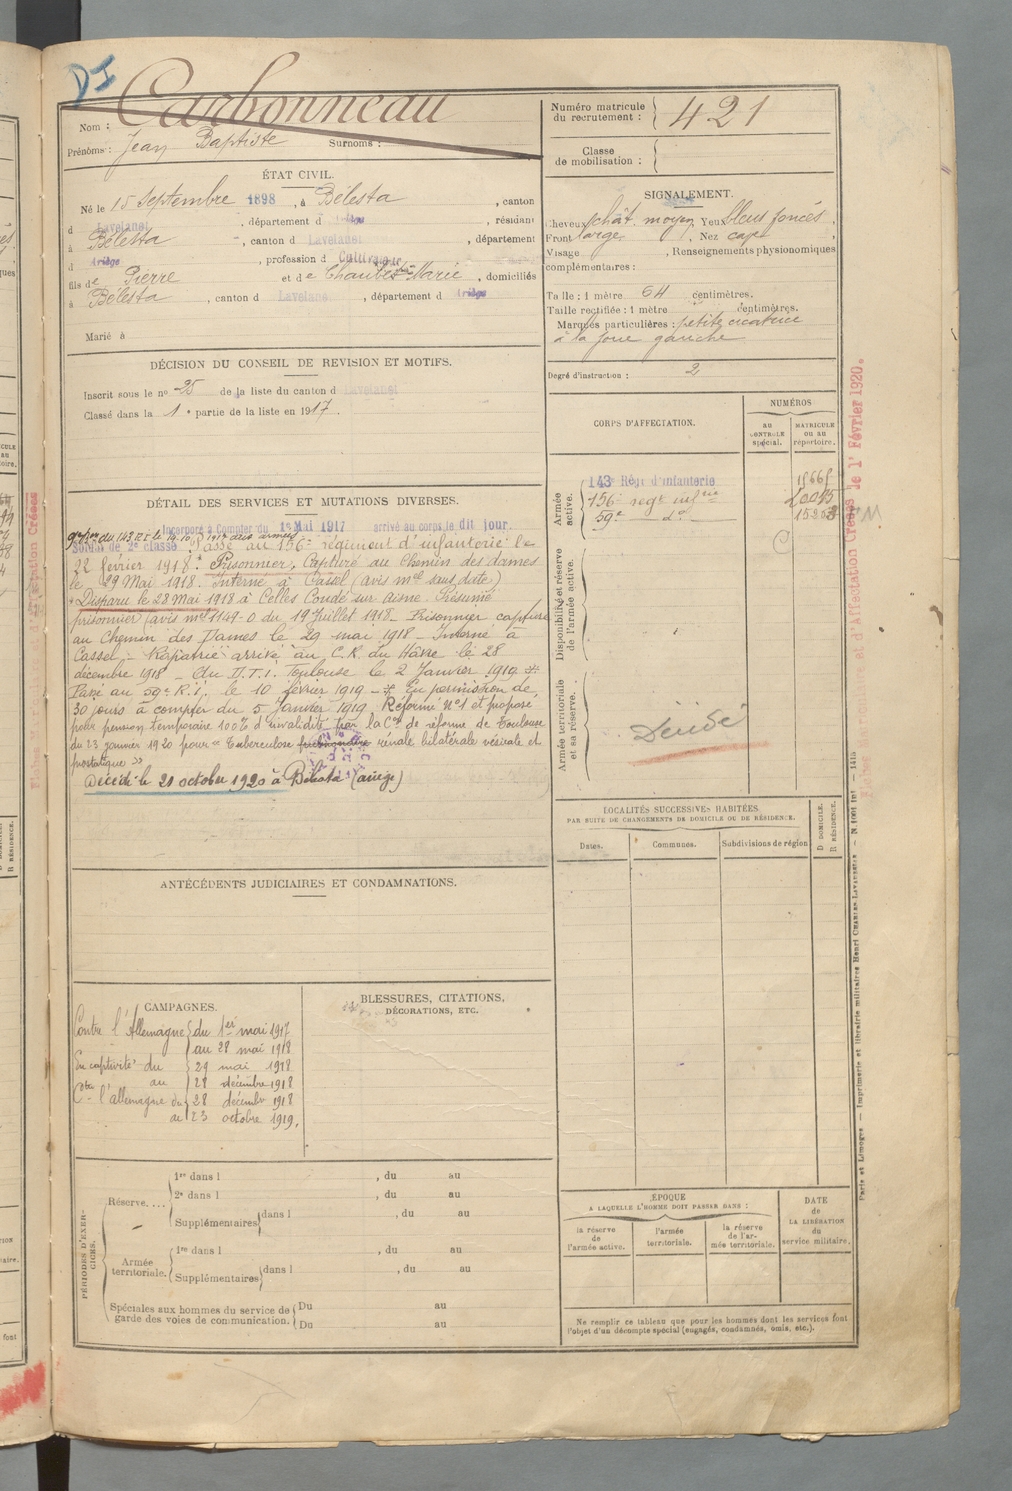 DI
Carbonneau
Nom :
Prénoms : Jean Baptiste Surnoms :
Numéro matricule du recrutement : 421
Classe de mobilisation :
ÉTAT CIVIL.
Né le 15 septembre 1898, à Bélesta, canton
d Lavelanet, département d Ariège, résidant
à Bélesta, canton d Lavelanet, département
d Ariège, profession d Cultivateur
fils de Pierre et de Marie, domiciliés
à Bélesta, canton d Lavelanet, département d Ariège
Marié à
SIGNALEMENT.
Cheveux chât. moyen, Yeux bleus foncés,
Front large, Nez cave,
Visage , Renseignements physionomiques
complémentaires :
Taille : 1 mètre 64 centimètres.
Taille rectifiée : 1 mètre centimètres.
Marques particulières : petite cicatrice
à la joue gauche
Degré d'instruction : 2
DÉCISION DU CONSEIL DE REVISION ET MOTIFS.
Inscrit sous le no 25 de la liste du canton d Lavelanet
Classé dans la 1e partie de la liste en 1917.
DÉTAIL DES SERVICES ET MUTATIONS DIVERSES.
Incorporé à Compter du 1er Mai 1917 arrivé au corps le dit jour.
Soldat de 2e classe. Passé au 156e régiment d'infanterie le
22 février 1918. Prisonnier, Capturé au Chemin des dames
le 29 Mai 1918. Interné à Cassel (avis mel sans date)
Disparu le 28 Mai 1918 à Celles Condé sur Aisne. Présumé
prisonnier (avis mel 1149-0 du 19 Juillet 1918 - Prisonnier capturé
au Chemin des Dames le 29 mai 1918 - Interné à
Cassel - Rapatrié arrivé au C.R. du Hâvre le 28
décembre 1918 - du D.T.I. Toulouse le 2 Janvier 1919 *
Passé au 59e R.I. le 10 février 1919 - * En permission de
30 jours à compter du 5 Janvier 1919. Réformé No 1 et proposé
pour pension temporaire 100% d'invalidité par la Con de réforme de Toulouse
du 23 janvier 1920 pour « Tuberculose rénale bilatérale vésicale et
prostatique »
Décédé le 21 octobre 1920 à Bélesta (ariège)
CORPS D'AFFECTATION.
NUMÉROS
AU CONTROLE spécial.
MATRICULE OU AU répertoire.
Armée active.
143e Rég. d'infanterie
156e regt infrie
59e do
Disponibilité et réserve de l'armée active.
Armée territoriale et sa réserve.
Décédé
LOCALITÉS SUCCESSIVES HABITÉES
PAR SUITE DE CHANGEMENTS DE DOMICILE OU DE RÉSIDENCE.
Dates.
Communes.
Subdivisions de région
D DOMICILE.
R RÉSIDENCE.
ANTÉCÉDENTS JUDICIAIRES ET CONDAMNATIONS.
CAMPAGNES.
Contre l'Allemagne du 1er mai 1917
au 28 mai 1918
En captivité du 29 mai 1918
au 28 décembre 1918
Ctre l'allemagne du 28 décembre 1918
au 23 octobre 1919.
BLESSURES, CITATIONS,
DÉCORATIONS, ETC.
PÉRIODES D'EXERCICES.
Réserve....
1re dans l , du au
2e dans l , du au
Supplémentaires dans l , du au
Armée territoriale.
1re dans l , du au
Supplémentaires dans l , du au
Spéciales aux hommes du service de garde des voies de communication.
Du au
Du au
ÉPOQUE
A LAQUELLE L'HOMME DOIT PASSER DANS :
la réserve de l'armée active.
l'armée territoriale.
la réserve de l'armée territoriale.
DATE de LA LIBÉRATION du service militaire.
Ne remplir ce tableau que pour les hommes dont les services font
l'objet d'un décompte spécial (engagés, condamnés, omis, etc.).
Paris et Limoges — Imprimerie et librairie militaires Henri CHARLES-LAVAUZELLE
et d'Affectation Créées le 1er Février 1920.